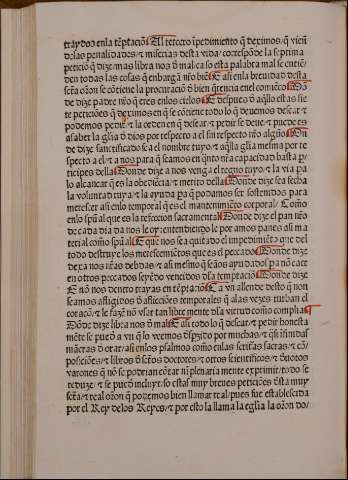 traydos enla tẽptaciõ Al tercero ĩpedimiento q̃ deximos/ q̃ viẽn
delas penalidades/ ⁊ miserias desta vida/ correspõde la septima
peticiõ q̃ dize/ mas libra nos d̃ mal ca so esta palabra mal se entiẽ
den todas las cosas q̃ enbargã nro biẽ E asi enla breuidad desta
scr̃a oron se cõtiene la
de dize padre nro q̃ eres enlos cielos E despues d̃ aq̃llo estas sie
te peticiões q̃ deximos en q̃ se cõtiene todo lo q̃ deuemos desear ⁊
podemos pedir/ ⁊ la orden en q̃ desear ⁊ pedir se deue/
asaber la gl̃ia d̃ dios por respecto a el sin respecto nro algũo Õn
de dize sanctificado sea el nombre tuyo/ ⁊ aq̃lla gl̃ia mesma por re
specto a el/ ⁊ a nos para q̃ seamos en q̃nto nr̃a capacidad basta p̱
ticipes della Donde dize a nos venga el regno tuyo/ ⁊ la via pa
lo alcançar q̃ es la obediẽcia/ ⁊ merito della Donde dize sea fecha
la voluntad tuya/ ⁊ la ayuda pa q̃ podamos ser sostenidos para
merescer asi enlo temporal q̃ es el mantenimiẽto corporal/ Como
enlo sp̃ual q̃ es la refeccion sacramental Donde dize el pan nro
de cada dia da nos le oy: entendiendo le por amos panes asi ma
terial como sp̃ual E que nos sea quitado el impedimiẽto que del
todo destruye los merescimientos que es el peccado Donde dize
dexa nos nr̃as debdas/ ⁊ asi mesmo q̃ seamos ayudados pa nõ caer
en otros peccados seyẽdo vencidos dla temptaciõ Donde dize
E nõ nos
seamos afligidos d̃ aflictiões temporales q̃ alas vezes turban el
coraçõ/ ⁊ le fazẽ nõ vsar tan libre mente dla virtud como compliria
Dõde dize libra nos d̃ mal E asi todo lo q̃ desear/ ⁊ pedir honesta
mẽte se puedẽ
maneras d̃ orar/ asi enlos psalmos como enlas scr̃ituras sacras/ ⁊ cõ
posiciões/ ⁊ libros d̃ sctos doctores ⁊ otros scientificos/ ⁊ deuotos
varones q̃ nõ se podrian cõtar ni plenaria mente exprimir/ todo se
reduze/ ⁊ se puedẽ incluyr so estas muy breues peticiões desta muy
scr̃a/ ⁊ real oron q̃ podemos bien llamar real/ pues fue establescida
por el Rey delos Reyes/ ⁊ por esto la llama la egl̃ia la oron do/